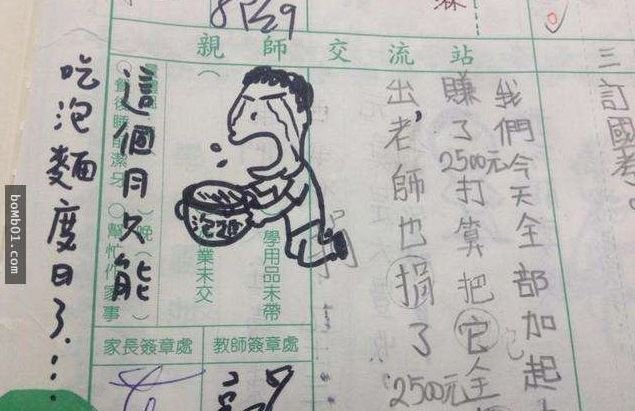 8/29
親師交流站
三訂國考
我們今天全部加起
賺了2500元打算把它全
出,老師也捐了2500元
捐
泡麵
這個月只能
吃泡麵度日了...
學用品未帶
業未交
餐後睡前潔牙
幫忙作家事
家長簽章處
教師簽章處
boMb01.com